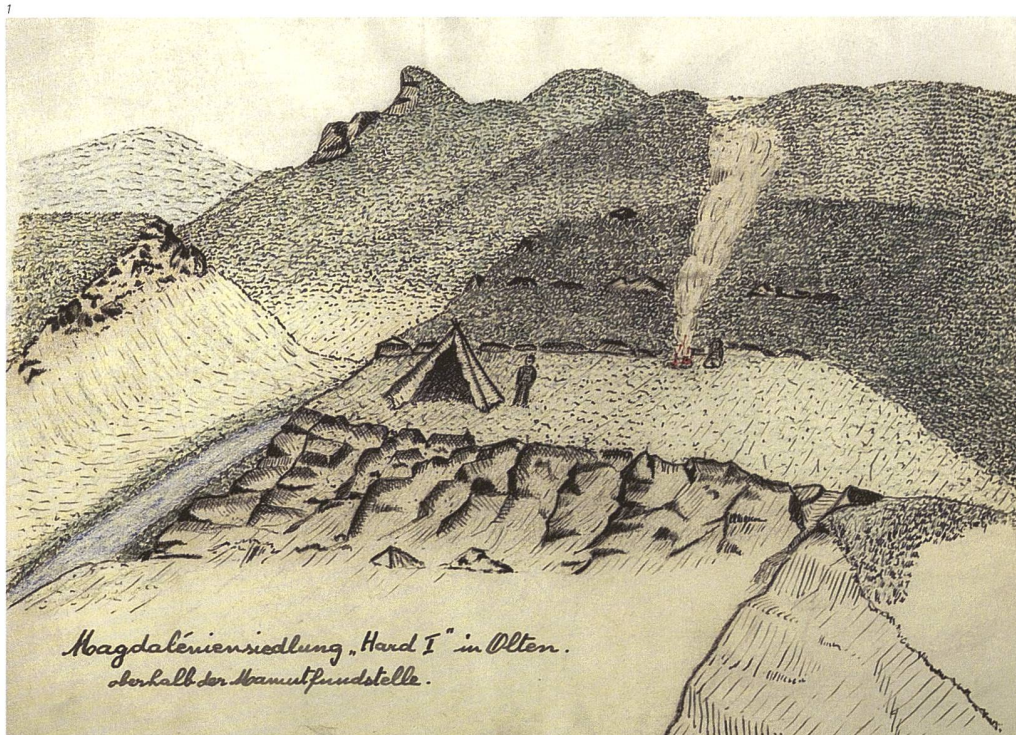 1
Magdaléniensiedlung „Hard I" in Olten.
oberhalb der Mamutfundstelle.